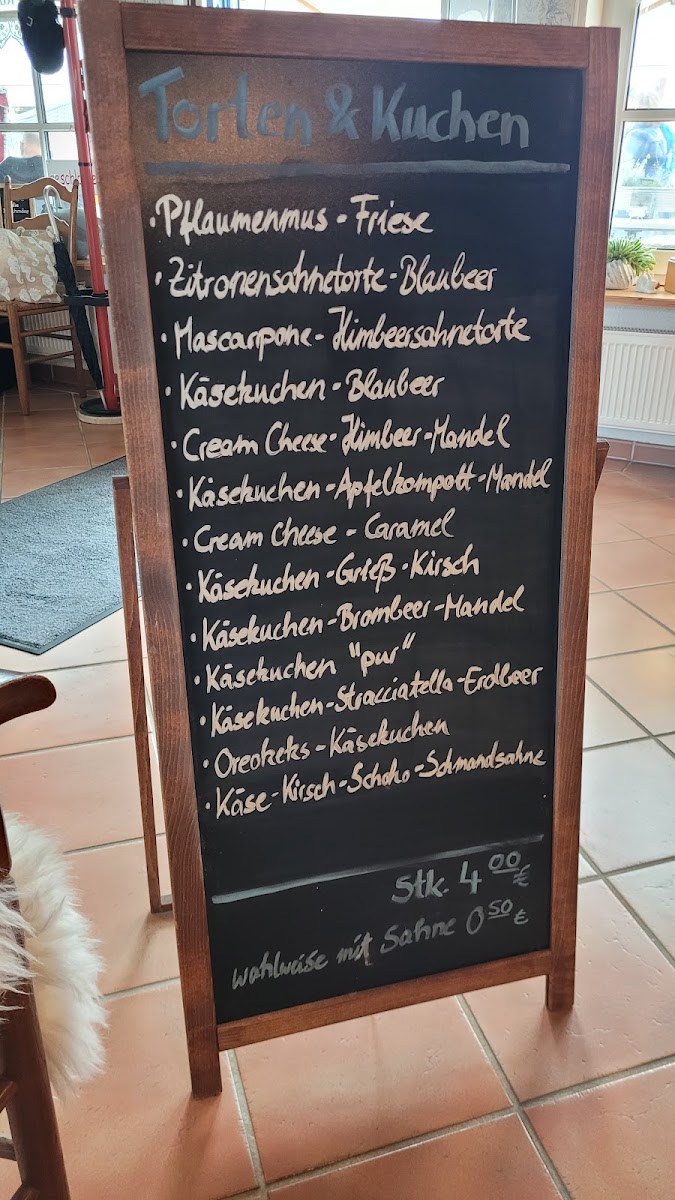 Torten & Kuchen
· Pflaumenmus - Friese
· Zitronensahnetorte - Blaubeer
· Mascarpone - Himbeersahnetorte
· Käsekuchen - Blaubeer
· Cream Cheese - Himbeer - Mandel
· Käsekuchen - Apfelkompott - Mandel
· Cream Cheese - Caramel
· Käsekuchen - Grieß - Kirsch
· Käsekuchen - Brombeer - Mandel
· Käsekuchen "pur"
· Käsekuchen - Stracciatella - Erdbeer
· Oreokeks - Käsekuchen
· Käse - Kirsch - Schoko - Schmandsahne
Stk. 4 00 €
wahlweise mit Sahne 0 50 €